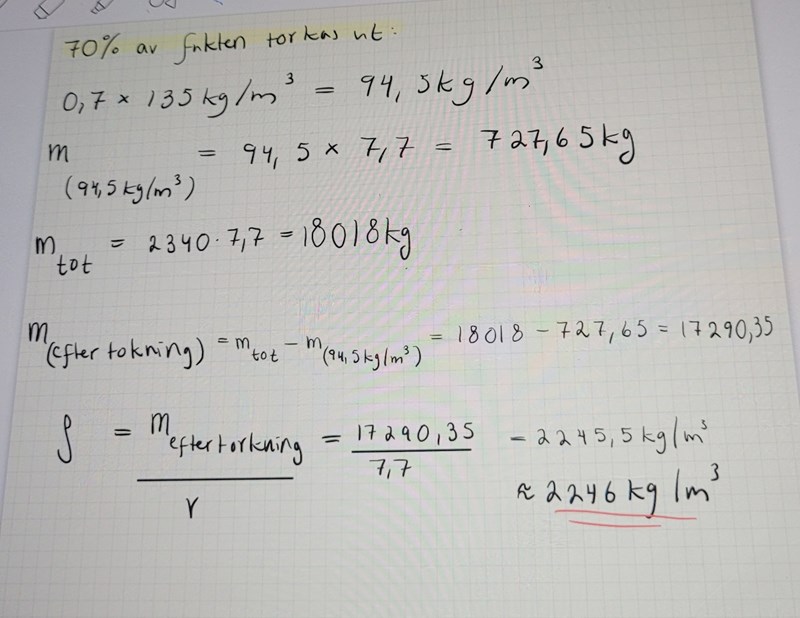 70% av fukten torkas ut:
0,7 × 135 kg/m³ = 94,5 kg/m³
m (94,5 kg/m³) = 94,5 × 7,7 = 727,65 kg
m tot = 2340 · 7,7 = 18018 kg
m (efter tokning) = m tot - m (94,5 kg/m³) = 18018 - 727,65 = 17290,35
ρ = m eftertorkning / V = 17290,35 / 7,7 = 2245,5 kg/m³
≈ 2246 kg/m³